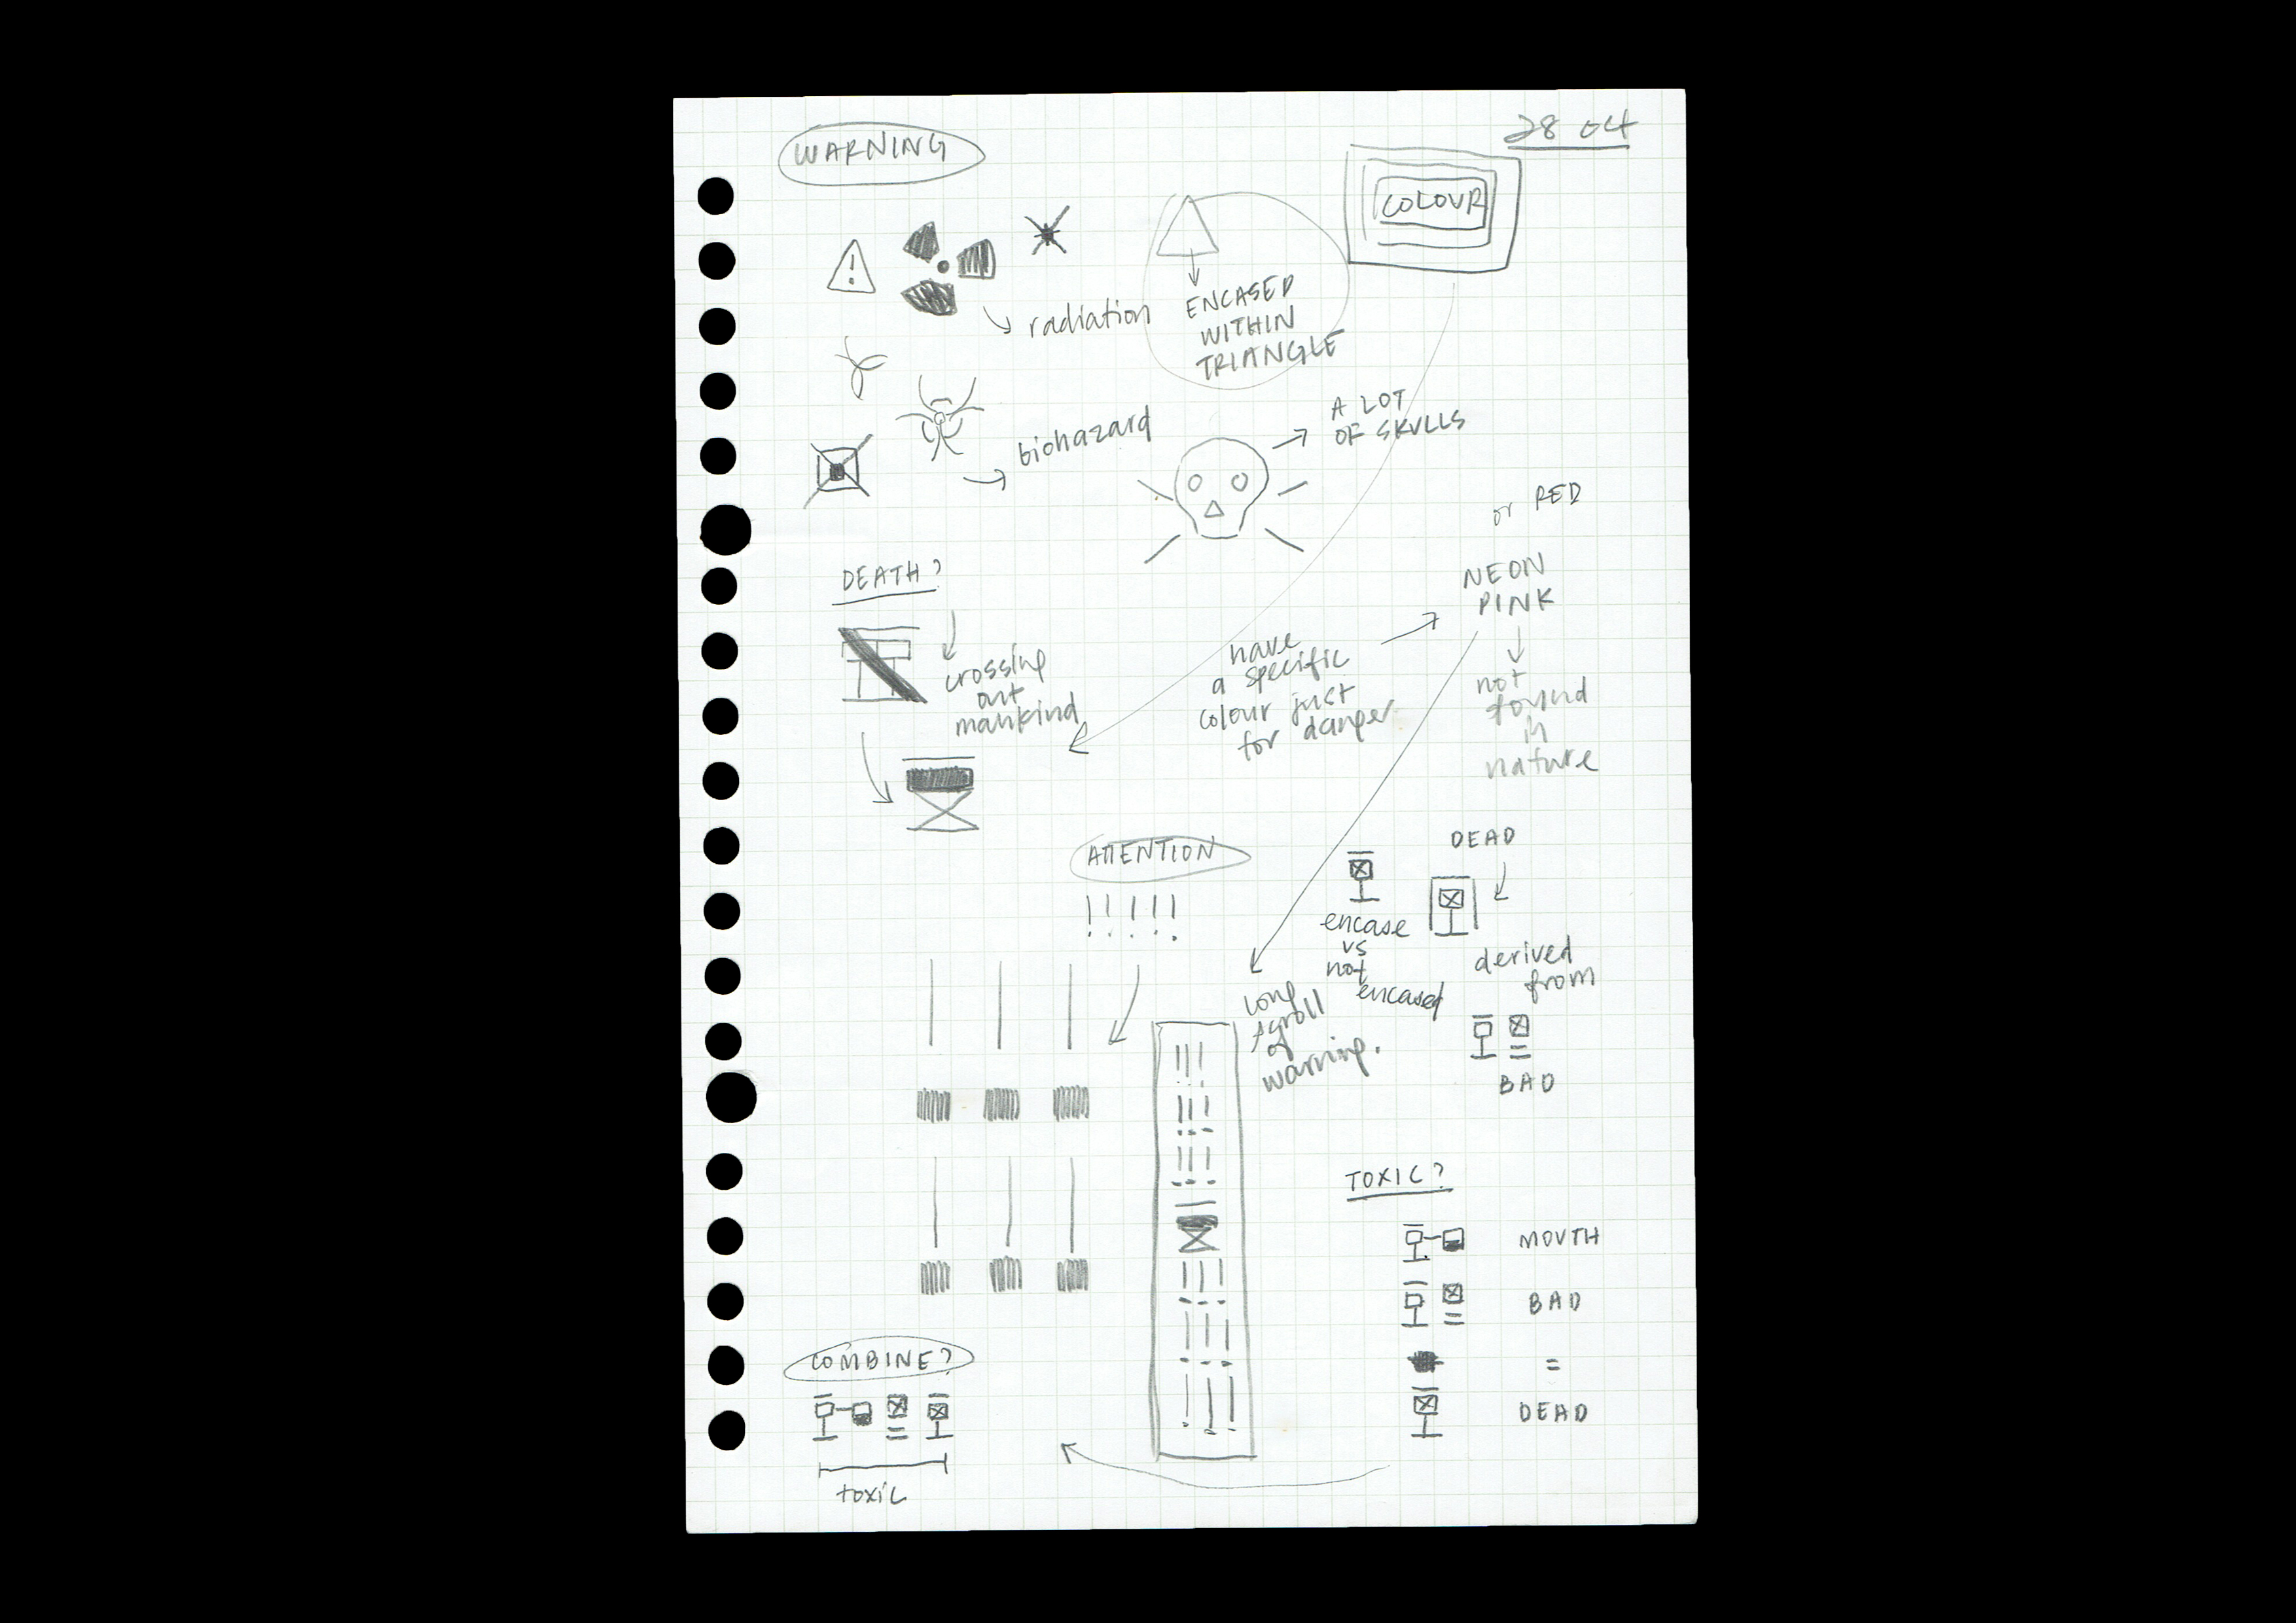 WARNING
28 04
COLOUR
!
radiation
ENCASED
WITHIN
TRIANGLE
biohazard
A LOT
OF SKULLS
or RED
DEATH?
crossing
out
mankind
have
a specific
colour just
for danger
NEON
PINK
not
found
in
nature
ATTENTION
! ! ! ! !
DEAD
encase
vs
not
encased
derived
from
BAD
long
scroll
of
warning.
TOXIC?
MOUTH
BAD
=
DEAD
COMBINE?
toxic